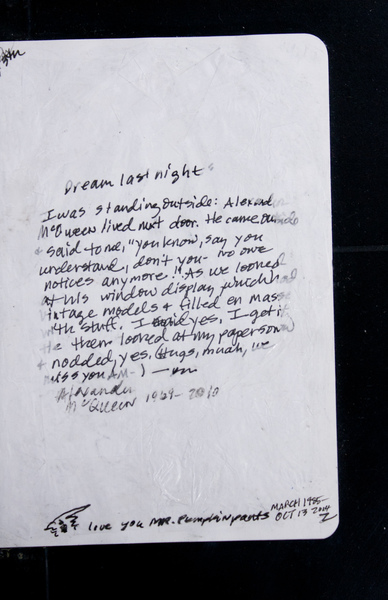 Dream last night
I was standing outside: Alexander
McQueen lived next door. He came outside
+ said to me, "you know, say you
understand, don't you - no one
notices anymore." As we looked
at his window display which had
vintage models + filled en masse
with stuff. I said yes, I get it
He then looked at my paperson
+ nodded, yes. (Hugs, muah, we
miss you AM-)
Alexander
McQueen 1969-2010
love you MR. Pumpkinpants
MARCH 1995-
OCT 13 2014